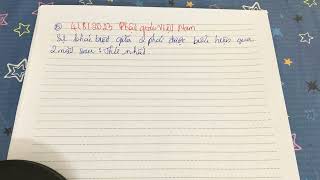 4/8/2023 Phật giáo Việt Nam
Sự khác biệt giữa 2 phái được biểu hiện qua
2 mặt sau: thứ nhất